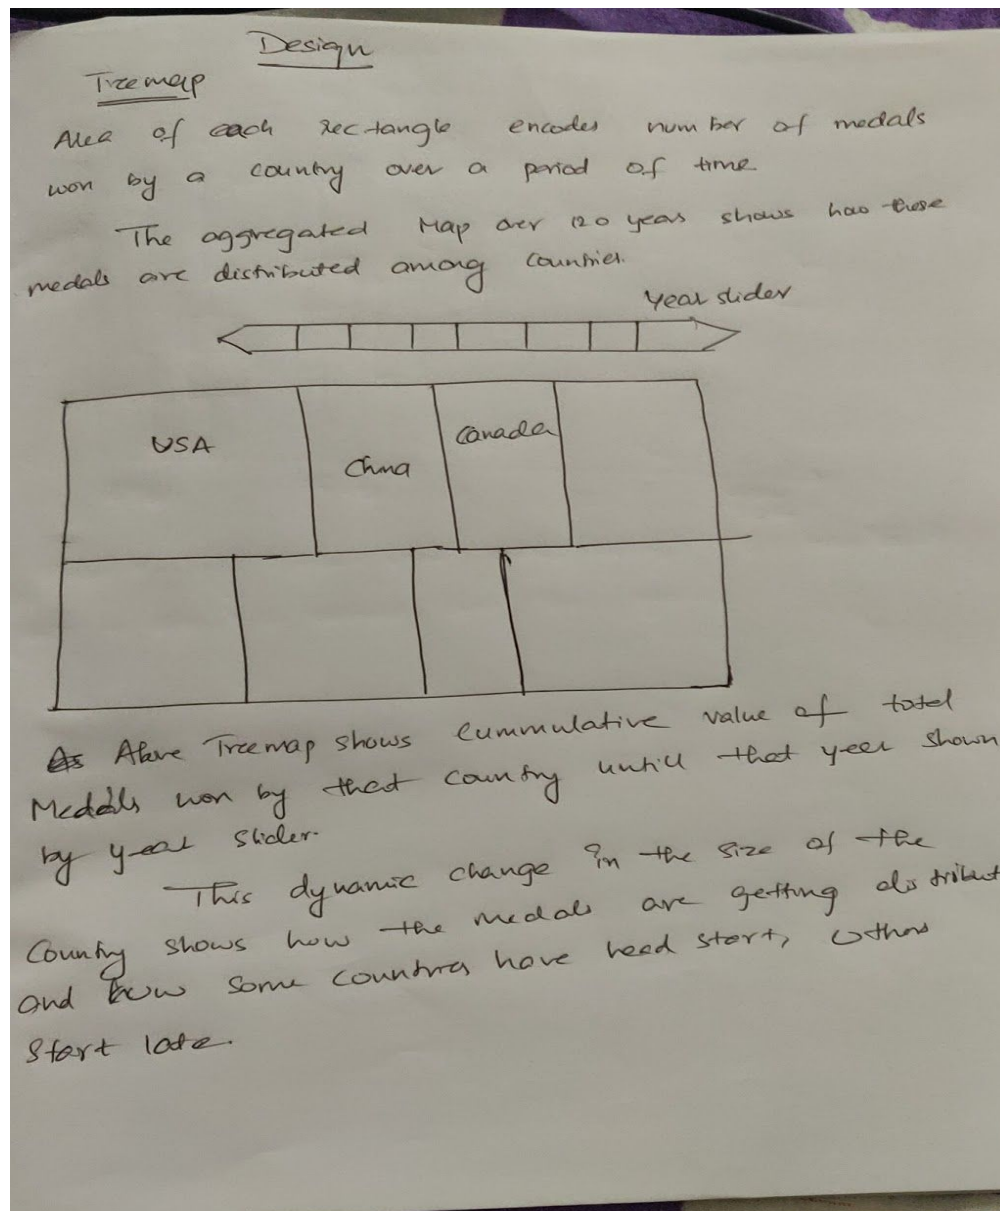 Design
Treemap
Area of each rectangle encodes number of medals
won by a country over a period of time.
The aggregated Map over 120 years shows how these
medals are distributed among countries.
Year slider
USA
China
Canada
As Above Treemap shows Cummulative value of total
Medals won by that country untill that year shown
by year slider.
This dynamic change in the size of the
Country shows how the medals are getting distribut
and how some countries have head start, others
start late.